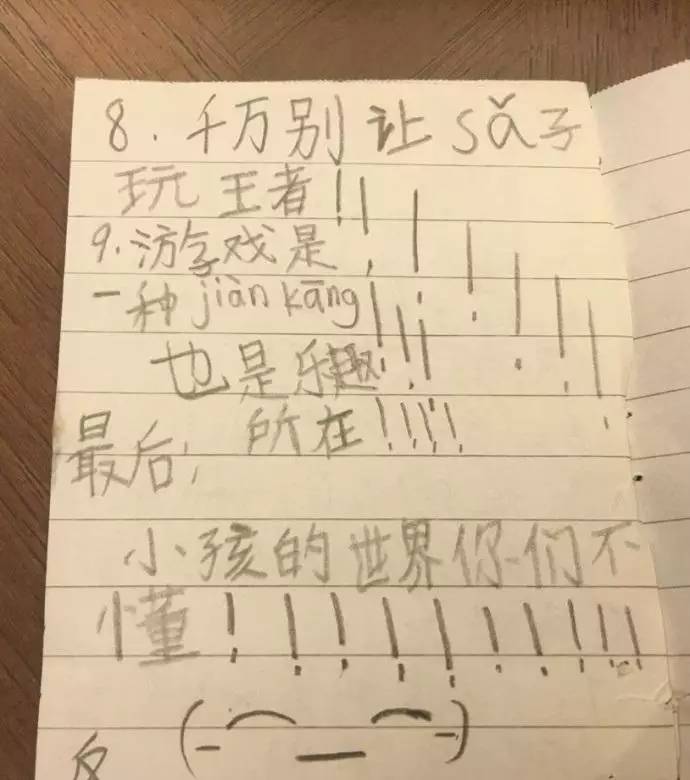 8.千万别让sǎ子
玩王者!!!!!!!!
9.游戏是
一种jiàn kāng!!!
也是乐趣!!
所在!!!!!
最后,
小孩的世界你们不
懂!!!!!!!!!!